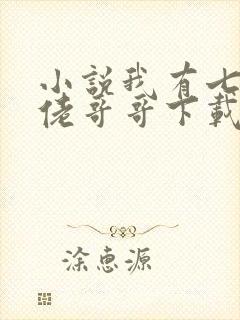 小説我有七
佬哥哥下載
涂惠源